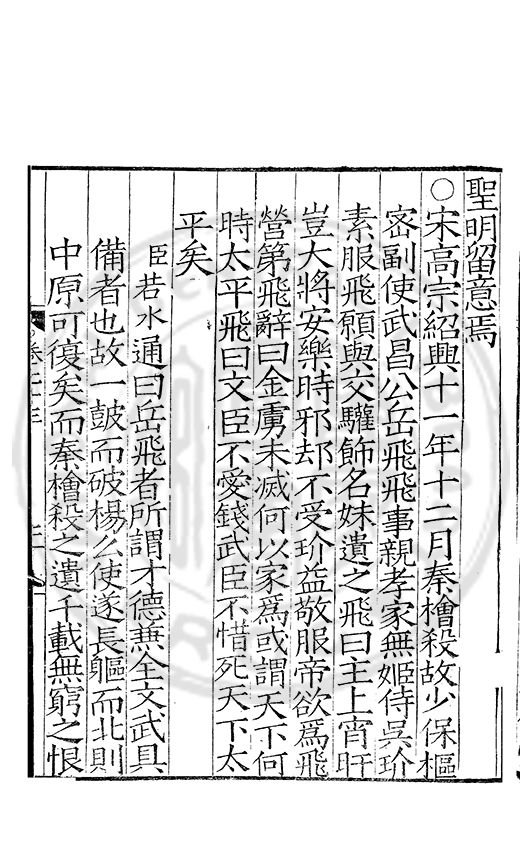 聖明留意焉
○宋高宗紹興十一年十二月秦檜殺故少保樞
宻副使武昌公岳飛飛事親孝家無姬侍吳玠
素服飛願與交驩飾名姝遺之飛曰主上宵旰
豈大將安樂時邪却不受玠益敬服帝欲爲飛
營第飛辭曰金虜未滅何以家爲或謂天下何
時太平飛曰文臣不愛錢武臣不惜死天下太
平矣
臣若水通曰岳飛者所謂才德兼全文武具
備者也故一鼓而破楊么使遂長驅而北則
中原可復矣而秦檜殺之遺千載無窮之恨
卷二十三